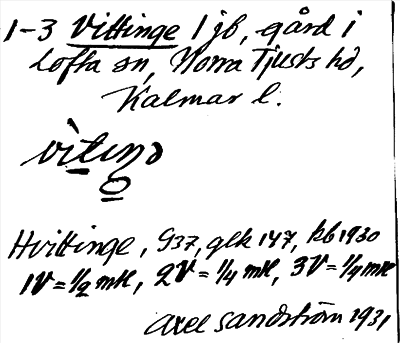 1-3 Vittinge 1 jb, gård i
Lofta sn, Norra Tjusts hd,
Kalmar l.
Hvittinge, G37, glk 147, kb 1930
1V = 1/2 mtl, 2V = 1/4 mtl, 3V = 1/4 mtl
Axel Sandström 1931